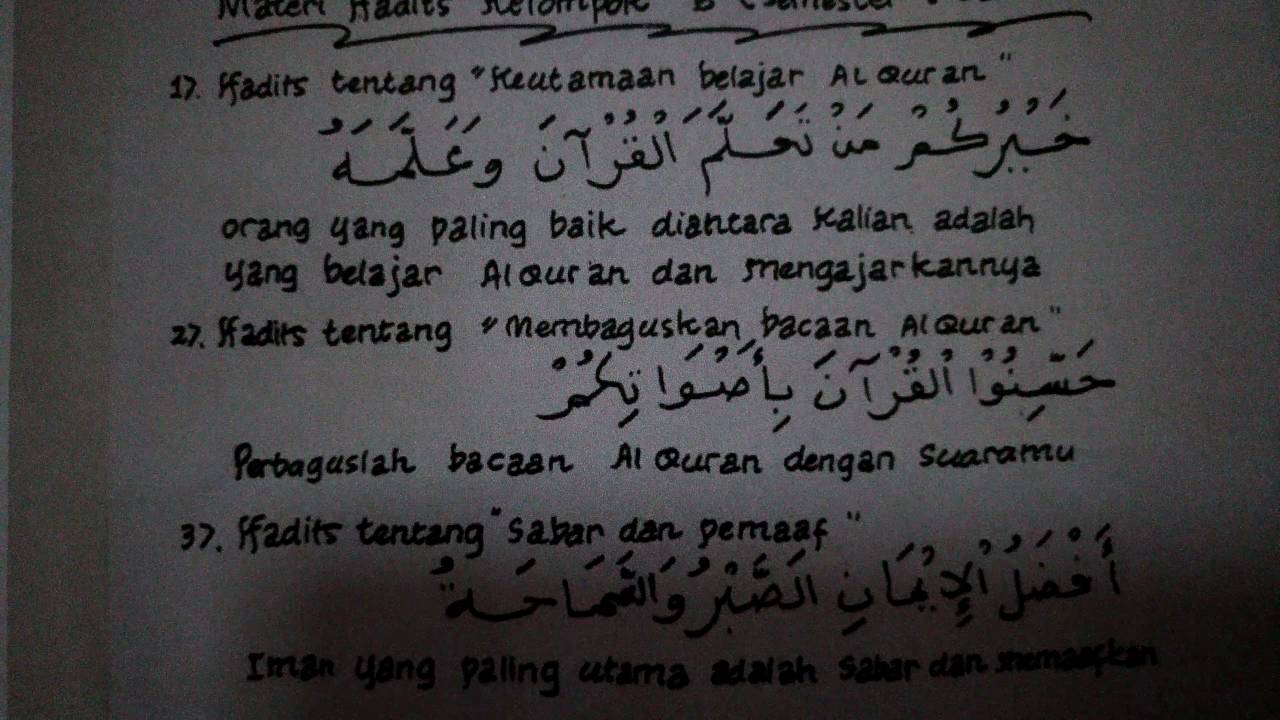 Materi Hadits Kelompok B (Semester
1). Hadits tentang "Keutamaan belajar Al Quran"
خَيْرُكُمْ مَنْ تَعَلَّمَ الْقُرْآنَ وَعَلَّمَهُ
orang yang paling baik diantara kalian adalah
yang belajar Al Qur'an dan mengajarkannya
2). Hadits tentang "Membaguskan bacaan Al Quran"
حَسِّنُوْا الْقُرْآنَ بِأَصْوَاتِكُمْ
Perbaguslah bacaan Al Quran dengan suaramu
3). Hadits tentang "Sabar dan pemaaf"
أَفْضَلُ الْإِيْمَانِ الصَّبْرُ وَالسَّمَاحَةُ
Iman yang paling utama adalah sabar dan memaafkan